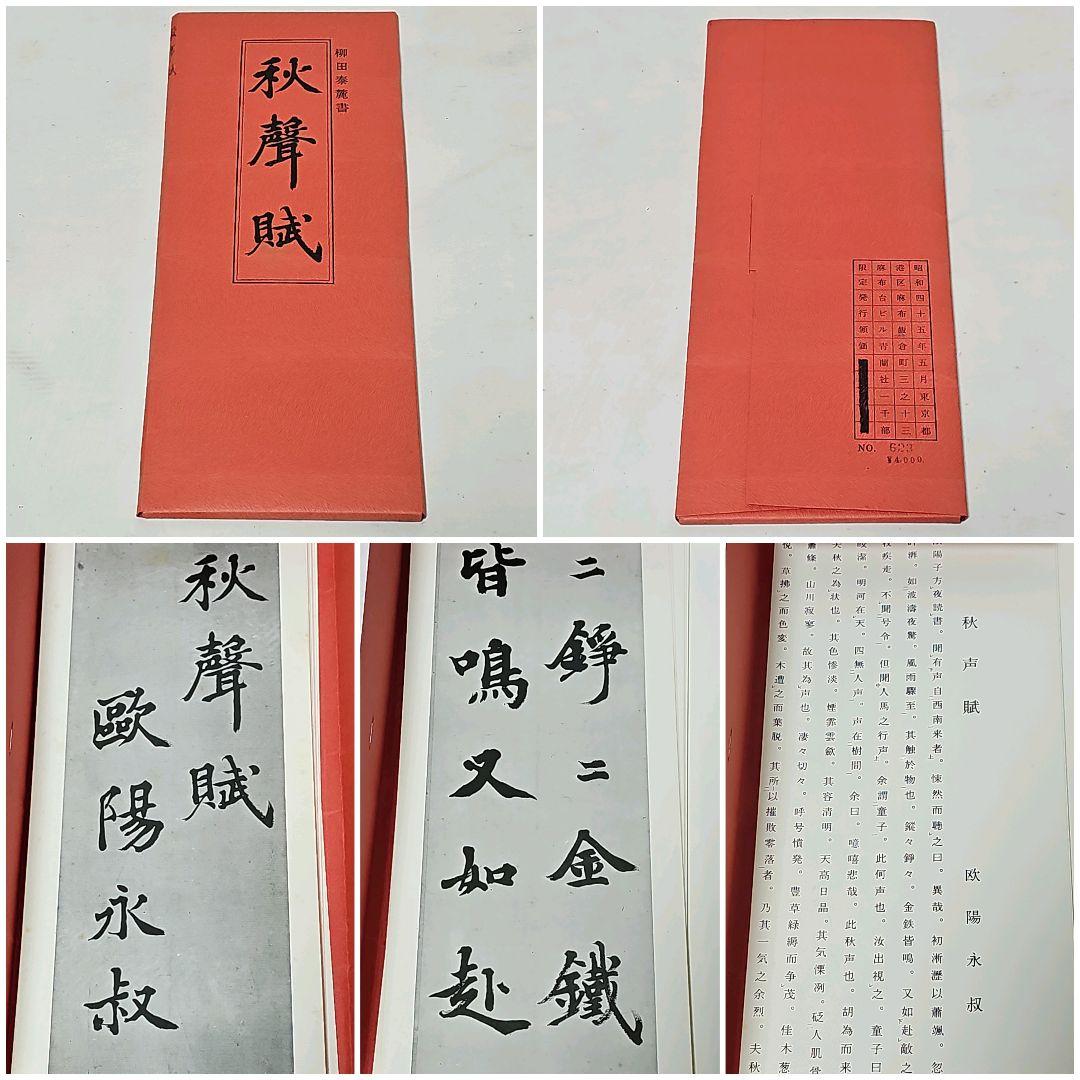 柳田泰麓書
秋聲賦
昭和四十五年五月東京都
港区麻布飯倉町三之十三
麻布台ビル青蘭社一千部
限定発行領価
NO. 623
¥4,000.
秋聲賦
歐陽永叔
二錚二金鐵
皆鳴又如赴
秋声賦　欧陽永叔
陽子方夜読書。聞有声自西南来者。悚然而聴之曰。異哉。初淅瀝以蕭颯。忽
湃。如波濤夜驚。風雨驟至。其触於物也。鏦々錚々。金鉄皆鳴。又如赴敵之
枚疾走。不聞号令。但聞人馬之行声。余謂童子。此何声也。汝出視之。童子曰
皎潔。明河在天。四無人声。声在樹間。余曰。噫嘻悲哉。此秋声也。胡為而来
夫秋之為状也。其色惨淡。煙霏雲斂。其容清明。天高日晶。其気慄冽。砭人肌骨
蕭條。山川寂寥。故其為声也。凄々切々。呼号憤発。豊草緑縟而争茂。佳木葱
悦。草拂之而色変。木遭之而葉脱。其所以摧敗零落者。乃其一気之余烈。夫秋